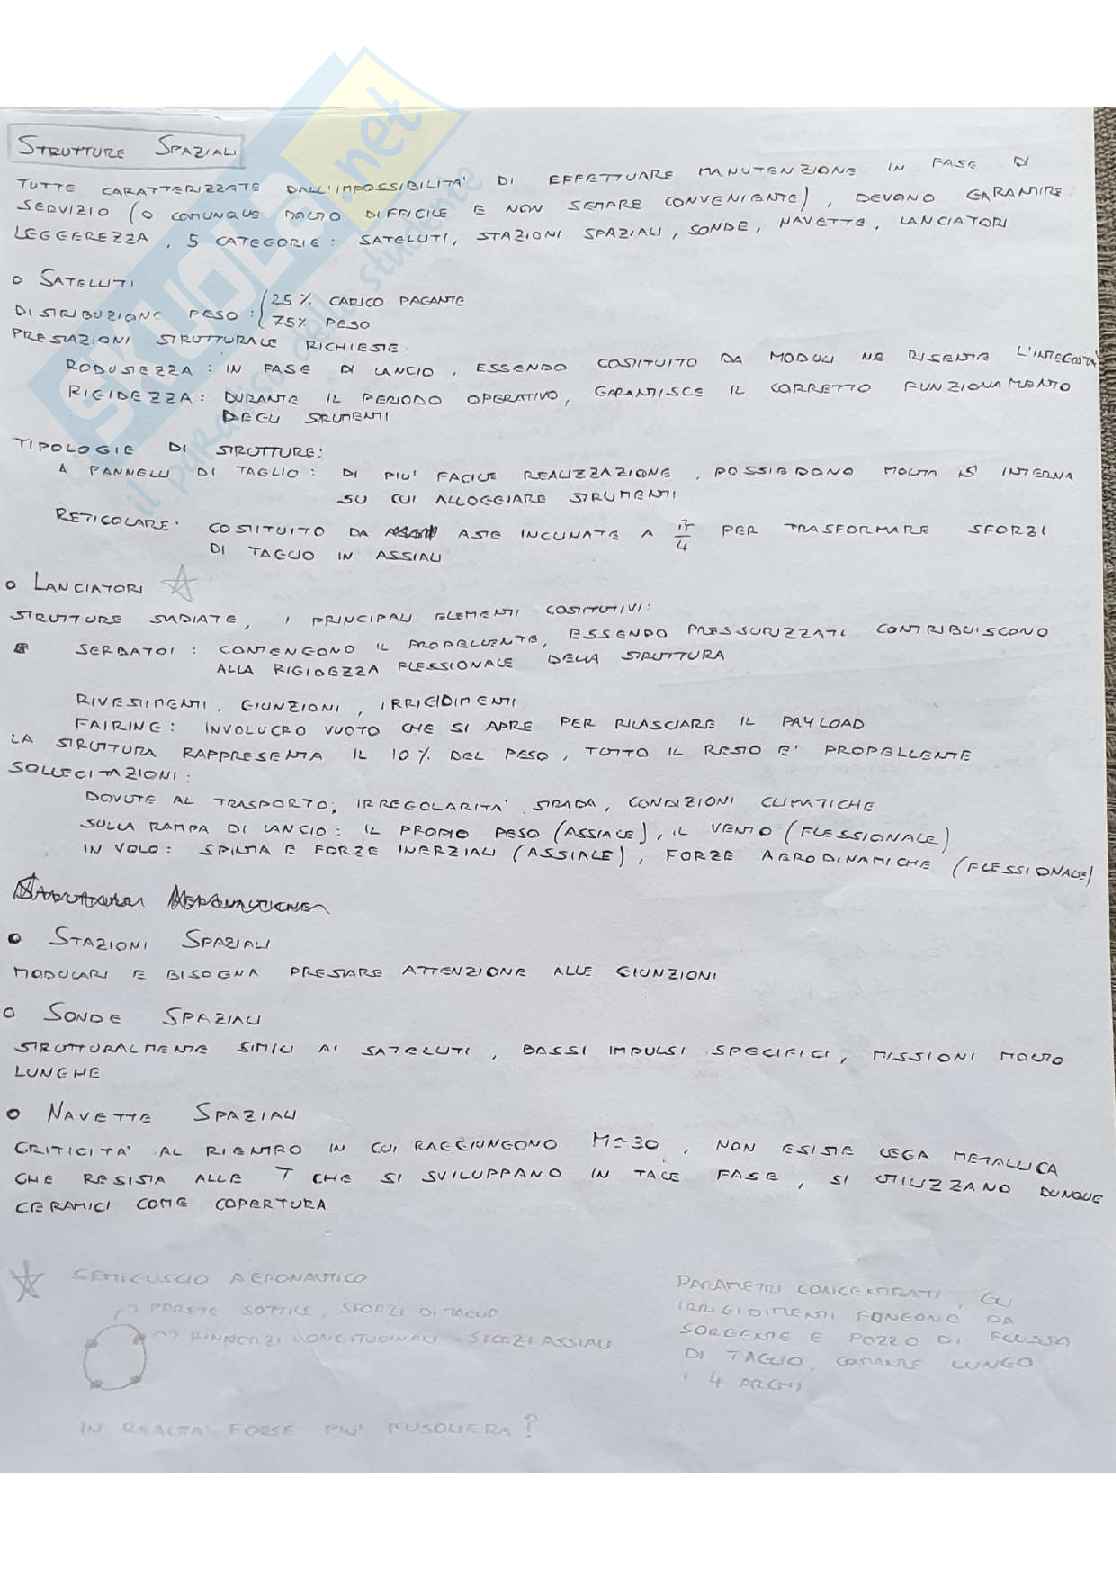 SKUOLA.net
il paradiso dello studente
STRUTTURE SPAZIALI
TUTTE CARATTERIZZATE DALL'IMPOSSIBILITA' DI EFFETTUARE MANUTENZIONE IN FASE DI
SERVIZIO (O COMUNQUE MOLTO DIFFICILE E NON SEMPRE CONVENIENTE), DEVONO GARANTIRE
LEGGEREZZA, 5 CATEGORIE: SATELLITI, STAZIONI SPAZIALI, SONDE, NAVETTE, LANCIATORI
o SATELLITI
DISTRIBUZIONE PESO: { 25% CARICO PAGANTE
75% PESO
PRESTAZIONI STRUTTURALE RICHIESTE
ROBUSTEZZA: IN FASE DI LANCIO, ESSENDO COSTITUITO DA MODULI NE RISENTA L'INTEGRITA'
RIGIDEZZA: DURANTE IL PERIODO OPERATIVO, GARANTISCE IL CORRETTO FUNZIONAMENTO
DEGLI STRUMENTI
TIPOLOGIE DI STRUTTURE:
A PANNELLI DI TAGLIO: DI PIU' FACILE REALIZZAZIONE, POSSIEDONO MOLTA S INTERNA
SU CUI ALLOGGIARE STRUMENTI
RETICOLARE: COSTITUITO DA ASTE INCLINATE A π/4 PER TRASFORMARE SFORZI
DI TAGLIO IN ASSIALI
o LANCIATORI ☆
STRUTTURE STADIATE, I PRINCIPALI ELEMENTI COSTITUTIVI:
SERBATOI: CONTENGONO IL PROPELLENTE, ESSENDO PRESSURIZZATI CONTRIBUISCONO
ALLA RIGIDEZZA FLESSIONALE DELLA STRUTTURA
RIVESTIMENTI, GIUNZIONI, IRRIGIDIMENTI
FAIRING: INVOLUCRO VUOTO CHE SI APRE PER RILASCIARE IL PAYLOAD
LA STRUTTURA RAPPRESENTA IL 10% DEL PESO, TUTTO IL RESTO E' PROPELLENTE
SOLLECITAZIONI:
DOVUTE AL TRASPORTO; IRREGOLARITA' STRADA, CONDIZIONI CLIMATICHE
SULLA RAMPA DI LANCIO: IL PROPIO PESO (ASSIALE), IL VENTO (FLESSIONALE)
IN VOLO: SPINTA E FORZE INERZIALI (ASSIALE), FORZE AERODINAMICHE (FLESSIONALE)
o STAZIONI SPAZIALI
MODULARI E BISOGNA PRESTARE ATTENZIONE ALLE GIUNZIONI
o SONDE SPAZIALI
STRUTTURALMENTE SIMILI AI SATELLITI, BASSI IMPULSI SPECIFICI, MISSIONI MOLTO
LUNGHE
o NAVETTE SPAZIALI
CRITICITA' AL RIENTRO IN CUI RAGGIUNGONO M=30, NON ESISTE LEGA METALLICA
CHE RESISTA ALLE T CHE SI SVILUPPANO IN TALE FASE, SI UTILIZZANO DUNQUE
CERAMICI COME COPERTURA
☆ SEMIGUSCIO AERONAUTICO
PARETE SOTTILE, SFORZI DI TAGLIO
RINFORZI LONGITUDINALI SFORZI ASSIALI
IN REALTA' FORSE PIU' FUSOLIERA?
PARAMETRI CONCENTRATI, GLI
IRRIGIDIMENTI FUNGONO DA
SORGENTE E POZZO DI FLUSSO
DI TAGLIO, COSTANTE LUNGO
I 4 ARCHI